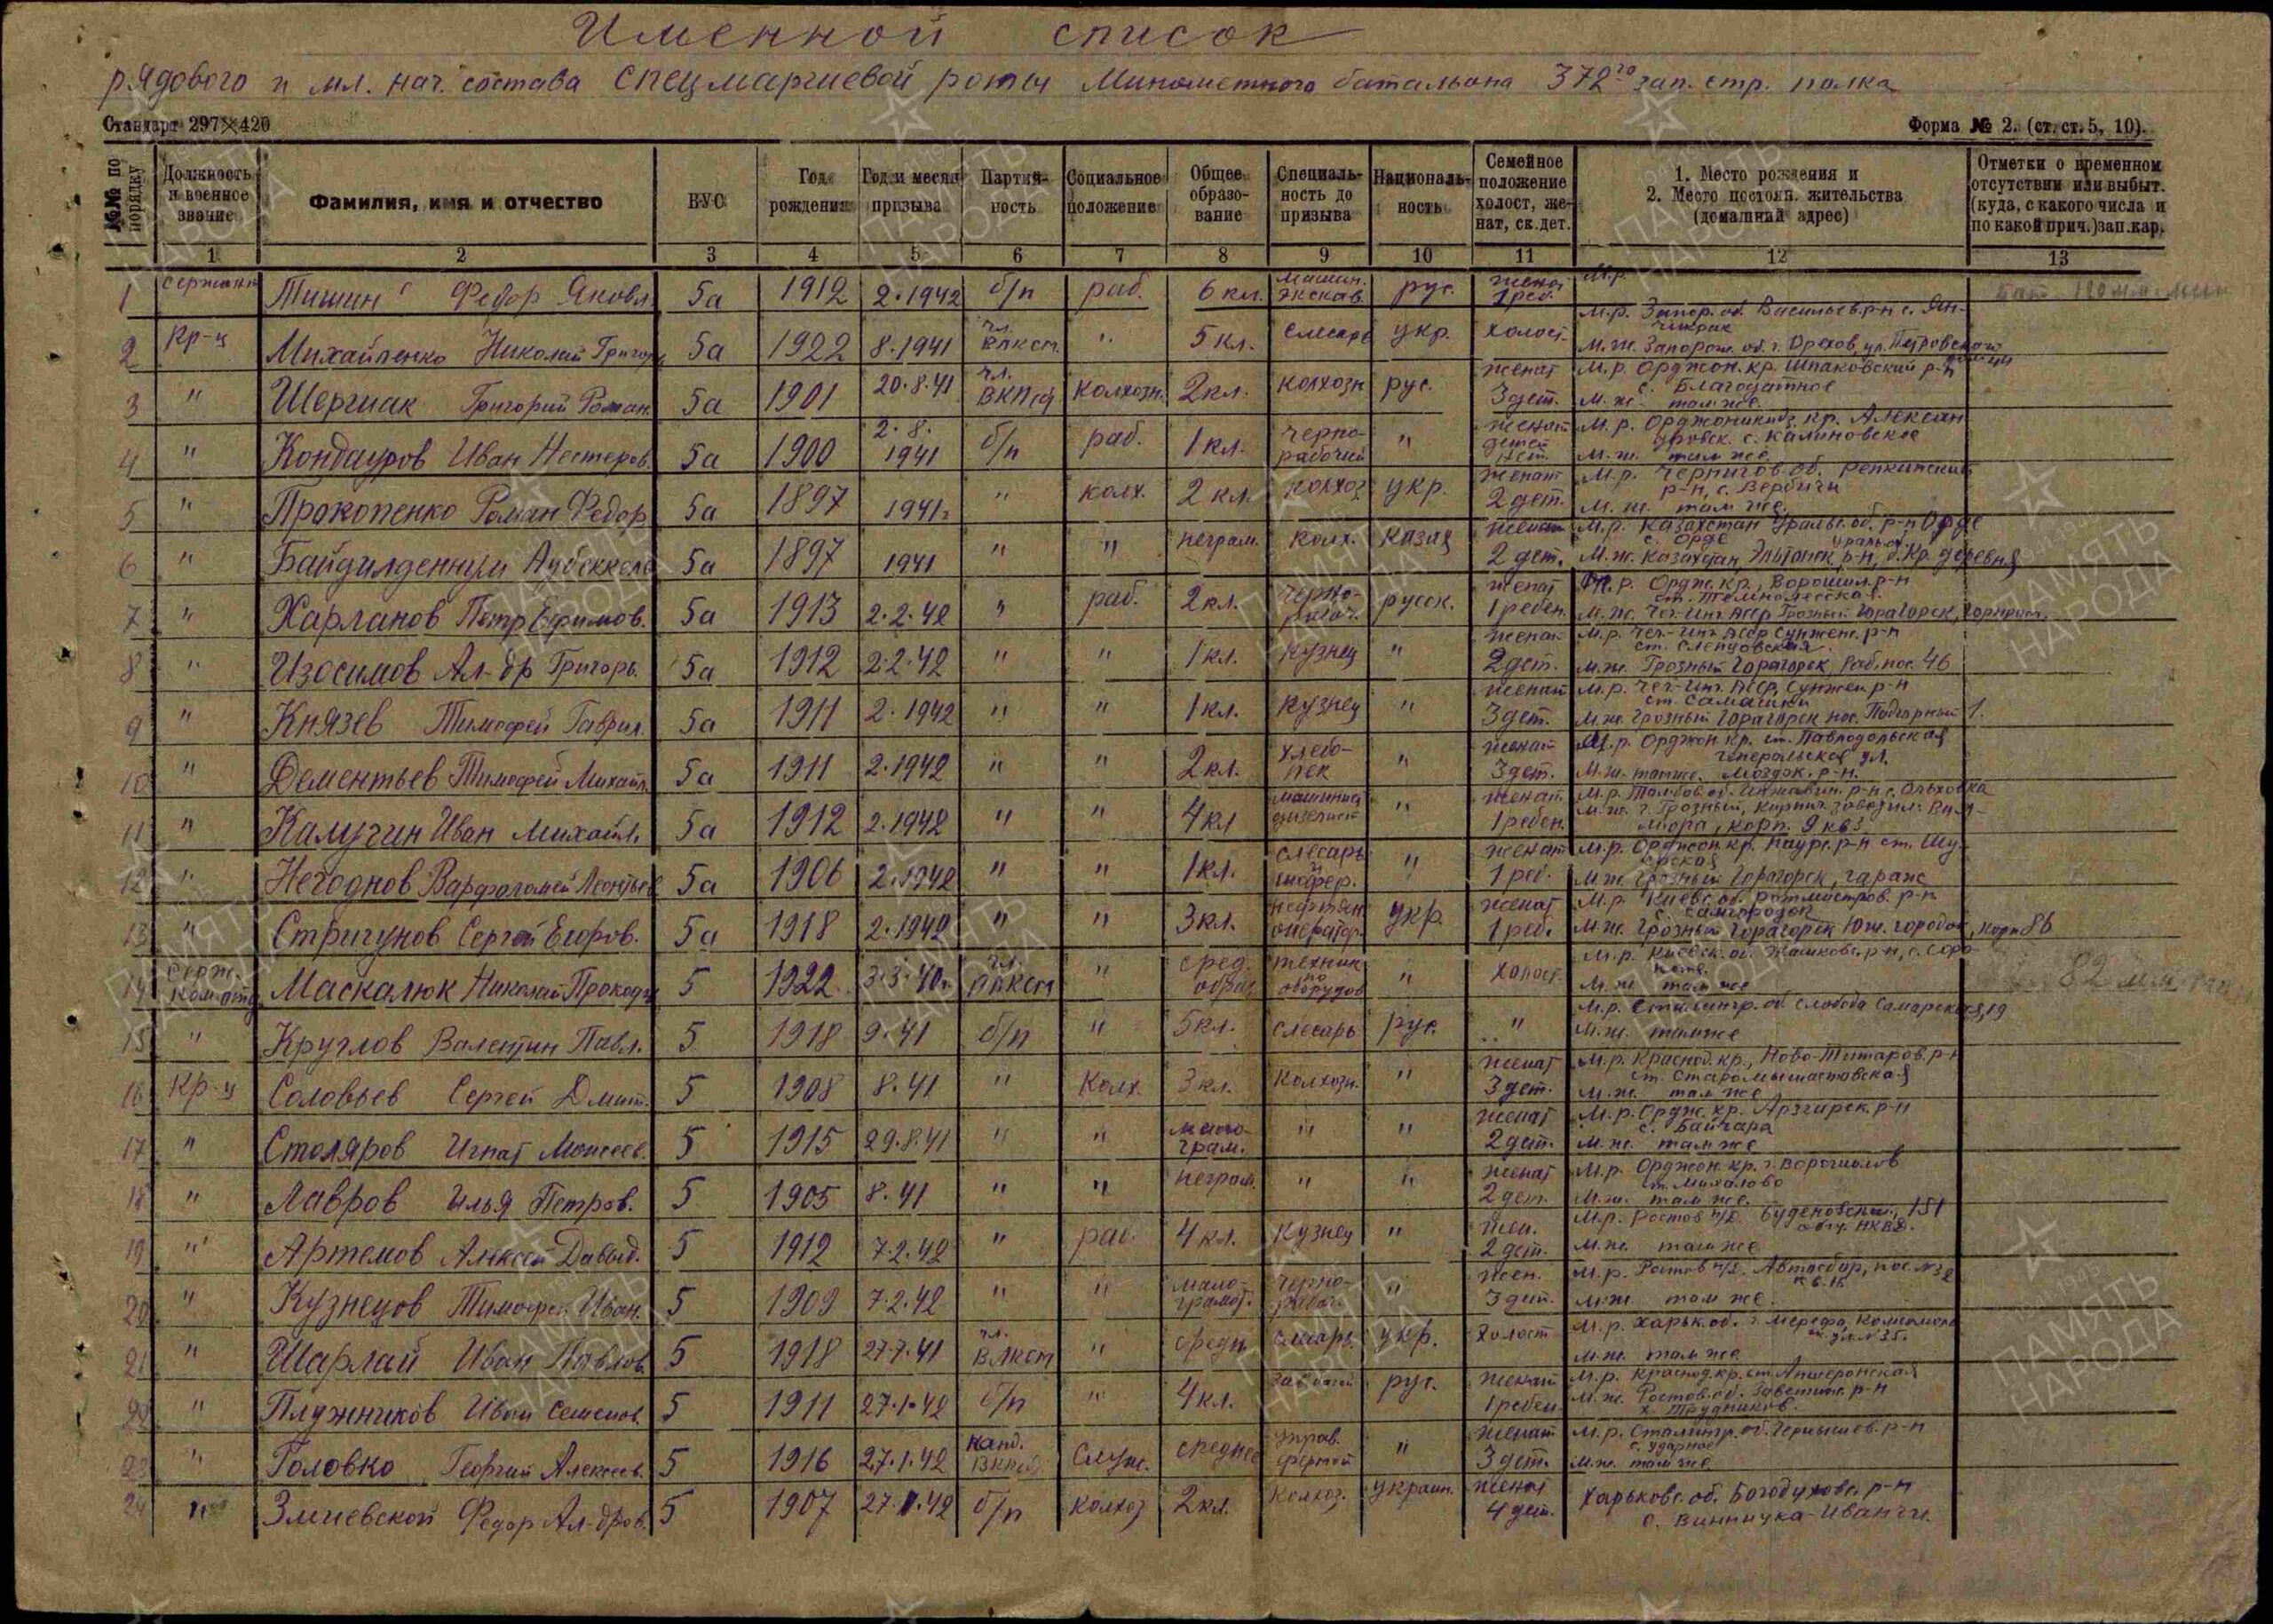 Именной список
рядового и мл. нач. состава Спецмаршевой роты Минометного батальона 372го зап. стр. полка
Стандарт 297×420
Форма № 2. (ст.ст. 5, 10).
№№ по порядку
Должность и военное звание
Фамилия, имя и отчество
ВУС
Год рождения
Год и месяц призыва
Партийность
Социальное положение
Общее образование
Специальность до призыва
Национальность
Семейное положение холост, женат, ск. дет.
1. Место рождения и
2. Место постоян. жительства
(домашний адрес)
Отметки о временном отсутствии или выбыт. (куда, с какого числа и по какой прич.) зап. кар.
1 2 3 4 5 6 7 8 9 10 11 12 13
1 Сержант Тишин Федор Яковл. 5а 1912 2.1942 б/п раб. 6 кл. машин. экскав. рус. 1 реб. М.р.
2 Кр-ц Михайленко Николай Григор. 5а 1922 8.1941 чл. ВЛКСМ " 5 кл. слесарь укр. холост. М.р. Запор. об. Васильев. р-н с.
М.ж. Запорож. об. г. Орехов, ул. Петровского
3 " Григорий Роман. 5а 1901 20.8.41 чл. ВКП(б) колхозн. 2 кл. колхозн рус. женат 3 дет. М.р. Орджон. кр. Шпаковский р-н
с. Благодатное
М.ж. там же.
4 " Кондауров Иван Нестеров. 5а 1900 2.8.1941 б/п раб. 1 кл. чернорабочий " женат М.р. Орджоникидз. кр. Александровск. с. Калиновское
М.ж. там же
5 " Прокопенко Роман Федор 5а 1897 1941г " колх. 2 кл. колхоз укр. женат 2 дет. М.р. Чернигов. об. Репкинский
р-н, с. Вербичи
М.ж. там же.
6 " 5а 1897 1941 " " неграм. колх. казах женат 2 дет. М.р. Казахстан Уральс. об. р-н Орде
с. Орде
М.ж. Казахстан, р-н, деревня
7 " Харланов Петр Ефимов. 5а 1913 2.2.42 " раб. 2 кл. черно-рабоч. русск. женат 1 ребен. М.р. Ордж. кр., Ворошил. р-н
ст. Темнолесская.
М.ж. Чеч-Инг АССР Грозный Горагорск,
8 " Изосимов Ал-др Григорь. 5а 1912 2.2.42 " " 1 кл. кузнец " женат 2 дет. М.р. Чеч-Инг АССР Сунжен. р-н
ст. Слепцовская.
М.ж. Грозный Горагорск, Раб. пос. 46
9 " Князев Тимофей Гаврил. 5а 1911 2.1942 " " 1 кл. кузнец " женат 3 дет. М.р. Чеч-Инг. АССР, Сунжен р-н
ст. Самашки
М.ж. Грозный Горагорск пос. Подгорный 1.
10 " Дементьев Тимофей Михайл. 5а 1911 2.1942 " " 2 кл. хлебопек " женат 3 дет. М.р. Орджон. кр. ст. Павлодольская
Генеральская ул.
М.ж. там же. Моздок. р-н.
11 " Калугин Иван Михайл. 5а 1912 2.1942 " " 4 кл машинист дизелист " женат. 1 ребен. М.р. Тамбов. об. Инжавин. р-н с. Ольховка
М.ж. г. Грозный, кирпич. завод
корп. 9 кв 3
12 " Негоднов Варфоломей Леонтьев 5а 1906 2.1942 " " 1 кл. слесарь и шофер. " женат 1 реб. М.р. Орджон. кр. Наурс. р-н ст.
М.ж. Грозный Горагорск, гараж
13 " Стригунов Сергей Егоров. 5а 1918 2.1942 " " 3 кл. нефтян оператор. укр. женат 1 реб. М.р. Киевс. об. Ротмистров. р-н
с. Самгородок
М.ж. Грозный Горагорск Юж. городок, корп 8б
14 Серж. ком. отд. Маскалюк Николай Прокоф. 5 1922 3.3.40г. чл. ВЛКСМ " сред. образ. техник по оборудов " холост. М.р. Киевск. об. Жашковс. р-н, с.
М.ж. там же
82 мм.
15 " Круглов Валентин Павл. 5 1918 9.41 б/п " 5 кл. слесарь рус. " М.р. Сталингр. об Слобода Самарская, 19
М.ж. там же
16 Кр-ц Соловьев Сергей Дмит. 5 1908 8.41 " Колх. 3 кл. колхозн. " женат 3 дет. М.р. Краснод. кр., Ново-Титаров. р-н
ст. Старомышастовская
М.ж. там же
17 " Столяров Игнат Моисеев. 5 1915 29.8.41 " " малограм. " " женат 2 дет. М.р. Ордж. кр. Арзгирск. р-н
с. Байчара
М.ж. там же
18 " Лавров Илья Петров. 5 1905 8.41 " " неграм. " " женат 2 дет. М.р. Орджон. кр. г. Ворошилов
М.ж. там же.
19 " Артемов Алексей Давыд. 5 1912 7.2.42 " раб. 4 кл. кузнец " жен. 2 дет. М.р. Ростов н/Д. Буденовская, 151
общ. НКВД.
М.ж. там же
20 " Кузнецов Тимофей Иван. 5 1909 7.2.42 " " малограмот. черно-рабоч. " жен. 3 дет. М.р. Ростов н/Д.
М.ж. там же.
21 " Шарлай Иван Павлов 5 1918 27.7.41 чл. ВЛКСМ " средн слесарь. укр. холост М.р. Харьк. об. г. Мерефа,
ул. №35.
М.ж. там же
22 " Плужников Иван Семенов. 5 1911 27.1.42 б/п " 4 кл. рус. женат 1 ребен. М.р. Краснод. кр. ст. Апшеронская
М.ж. Ростов. об. Заветин. р-н
х. Трудников.
23 " Головко Георгий Алексеев. 5 1916 27.1.42 канд. ВКП(б) Служ. среднее управ. фермой " женат 3 дет. М.р. Сталингр. об. Чернышев. р-н
с. Ударное
М.ж. там же
24 " Змиевской Федор Ал-дров. 5 1907 27.1.42 б/п колхоз 2 кл. колхоз. украин. женат 4 дет. Харьковс. об. Богодуховс. р-н